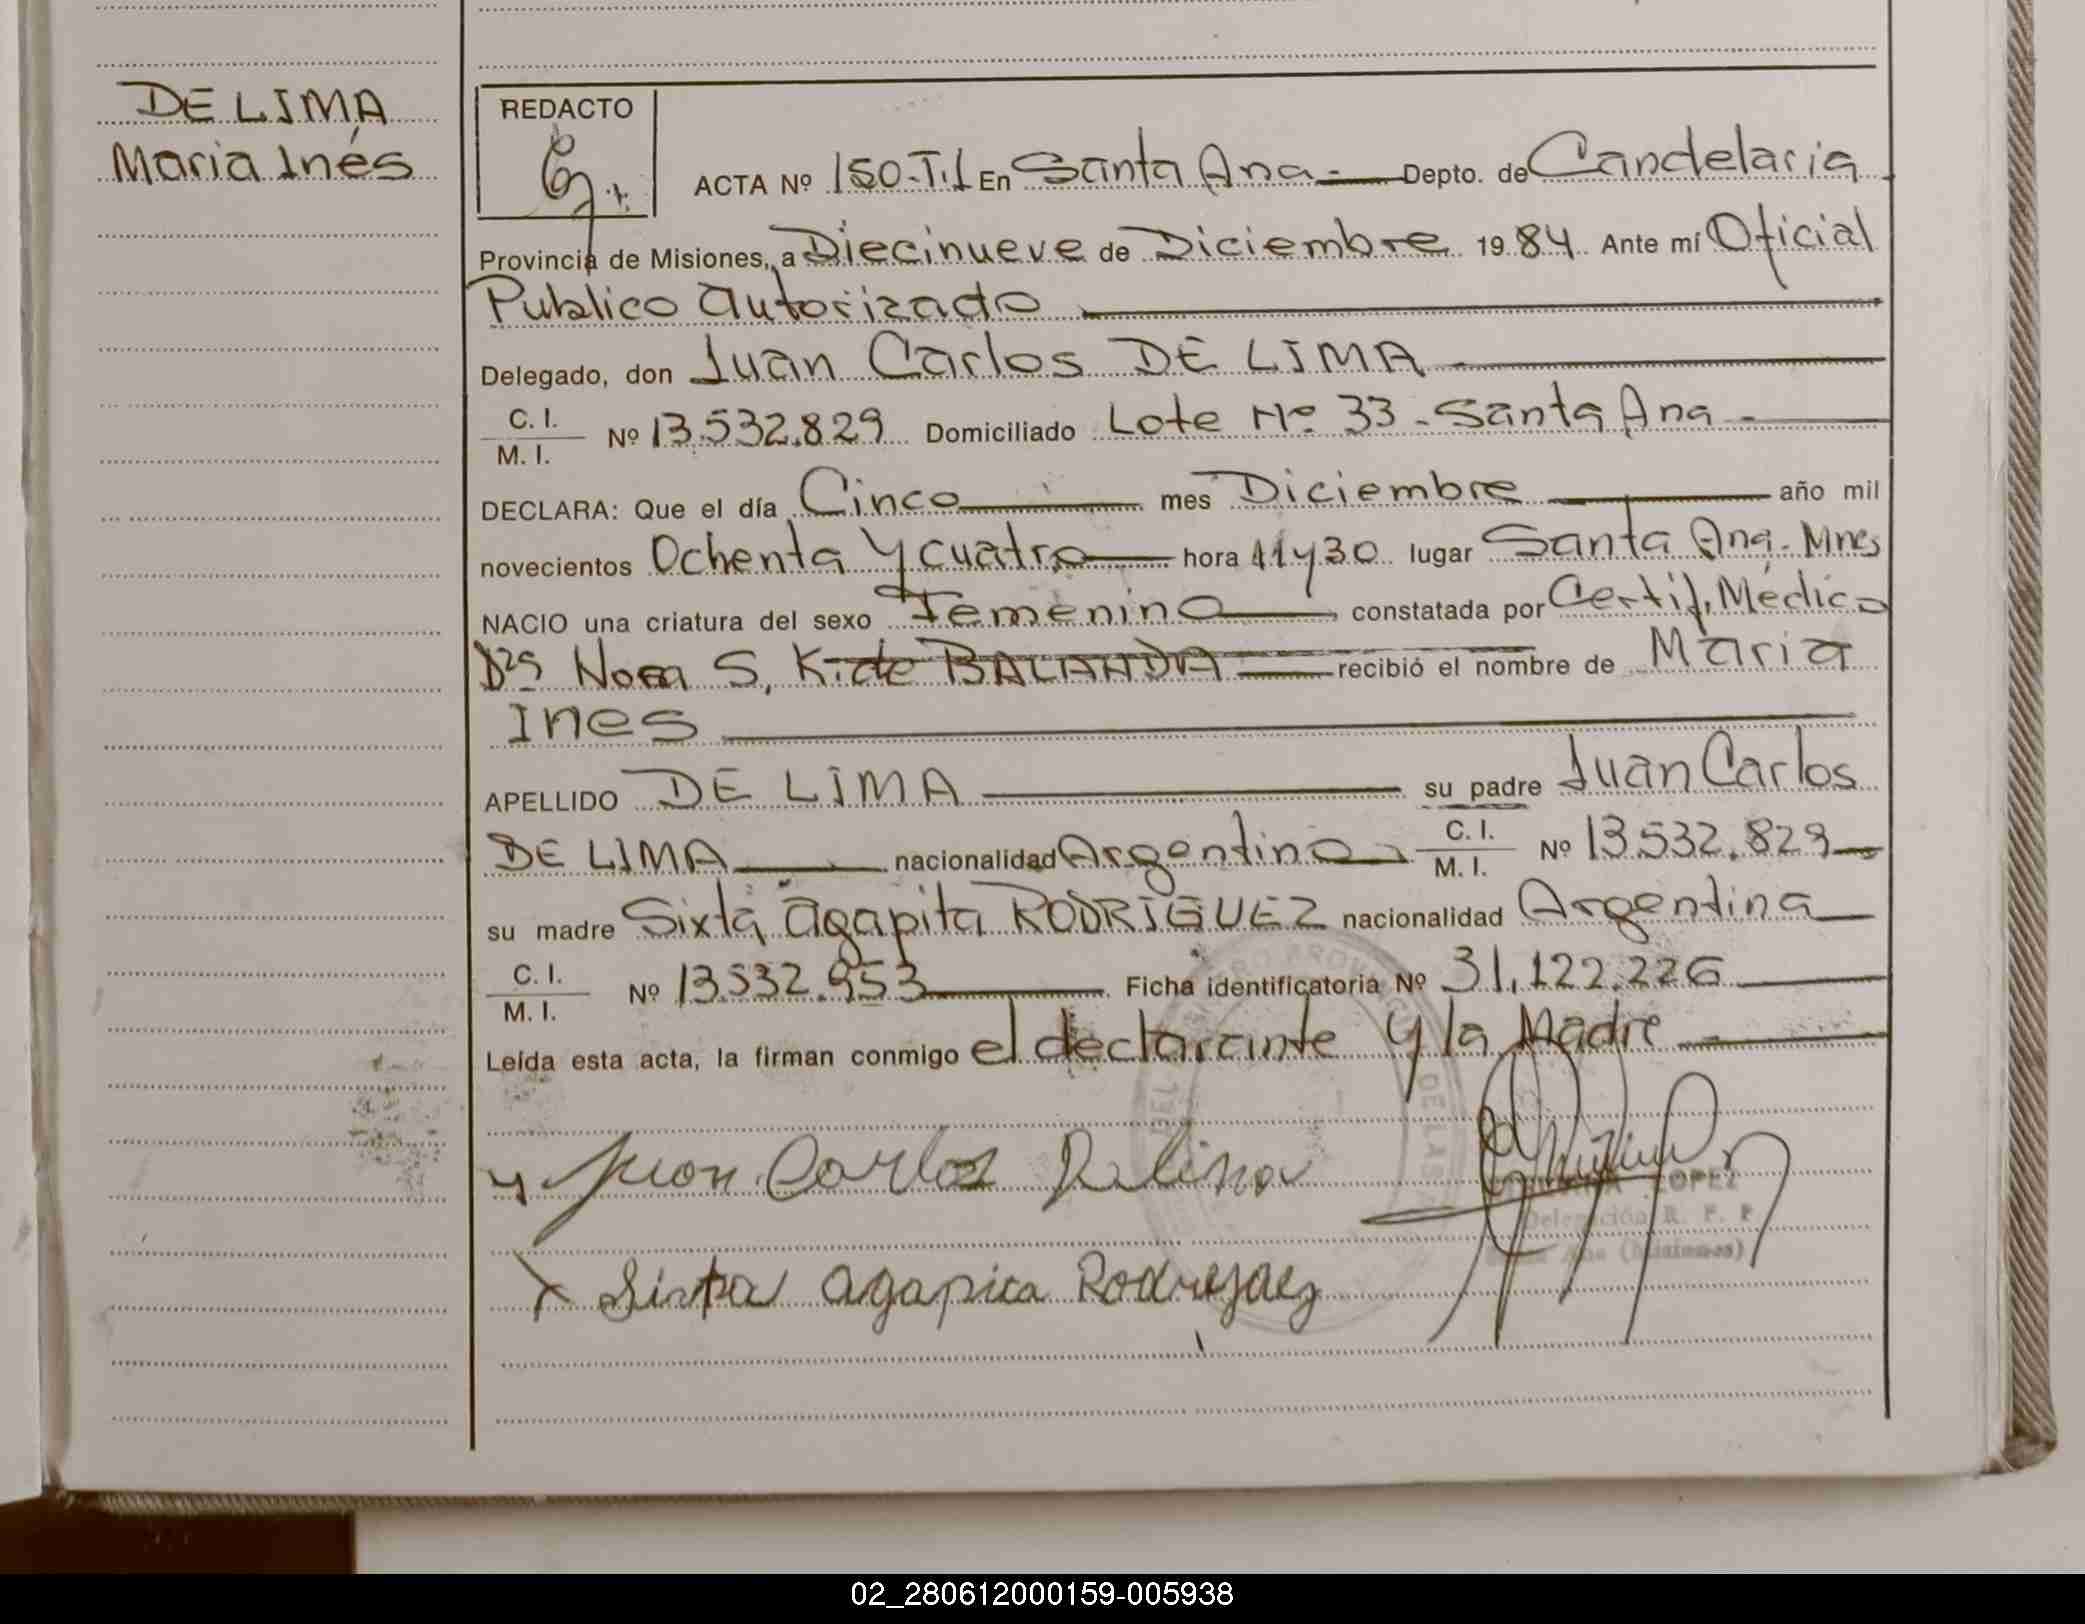 DE LIMA
Maria Inés
REDACTO
ACTA Nº 150-T.I En Santa Ana - Depto. de Candelaria
Provincia de Misiones, a Diecinueve de Diciembre 1984 Ante mí Oficial
Publico autorizado
Delegado, don Juan Carlos DE LIMA
C. I.
M. I. Nº 13.532.829 Domiciliado Lote Nº 33 - Santa Ana -
DECLARA: Que el día Cinco mes Diciembre año mil
novecientos Ochenta y cuatro hora 11 y 30 lugar Santa Ana - Mnes
NACIO una criatura del sexo Femenino constatada por Certif. Médico
Dra Nora S. K. de BALANDA recibió el nombre de Maria
Ines
APELLIDO DE LIMA su padre Juan Carlos
DE LIMA nacionalidad Argentino C. I.
M. I. Nº 13.532.829
su madre Sixta agapita RODRIGUEZ nacionalidad Argentina
C. I.
M. I. Nº 13.532.953 Ficha identificatoria Nº 31.122.226
Leída esta acta, la firman conmigo el declarante y la Madre
Juan Carlos De Lima
LOPEZ
Delegación R. P. P
Ana (Misiones)
X Sixta agapita Rodriguez
02_280612000159-005938